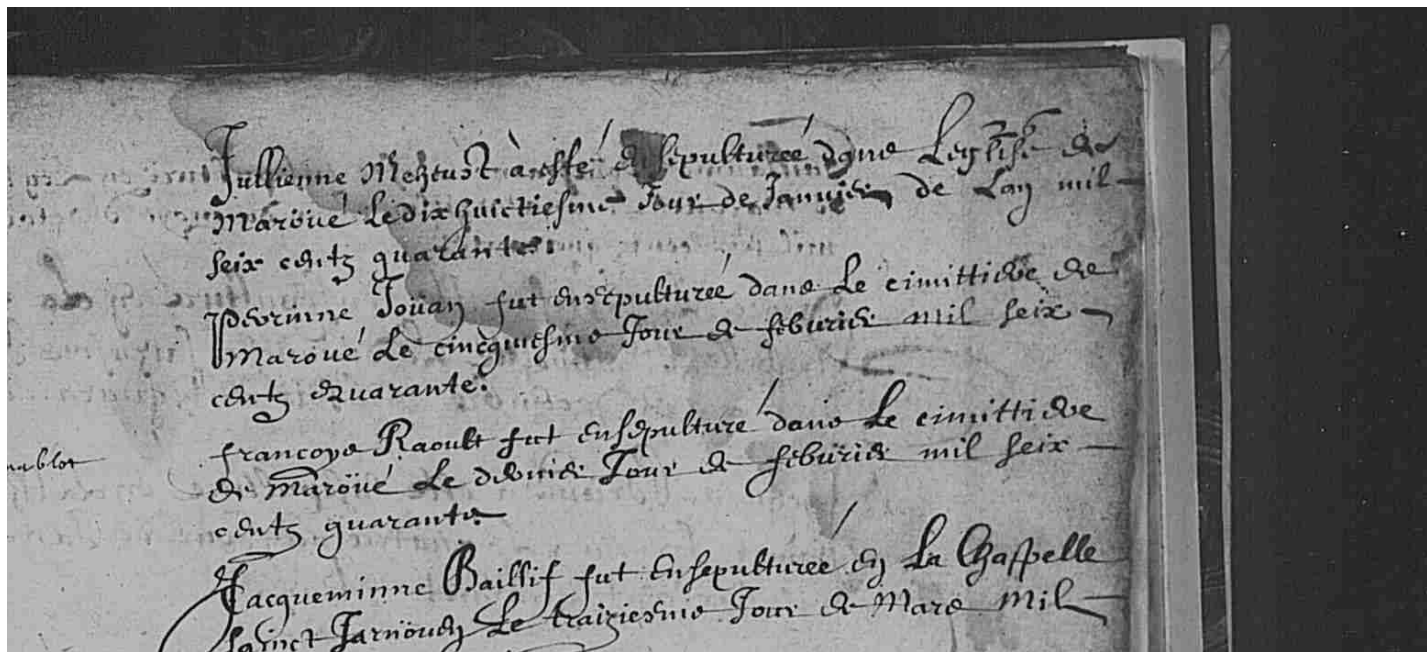 Jullienne Meheust à esté ensepulturéé dans Leglise de
Maroüé Le dixhuictiesme Jour de Janvier de Lan mil
seix centz quarante.
Perrinne Joüan fut ensepulturéé dans Le cimittiere de
Maroüé Le cincquiesme Jour de feburier mil seix
centz quarante.
francoys Raoult fut ensepulturé dans Le cimittiere
nablot
de Maroüé Le dernier Jour de feburier mil seix
centz quarante
Jacqueminne Baillif fut ensepulturéé en La Chappelle
sainct Jarnöuen Le traiziesme Jour de Mars Mil